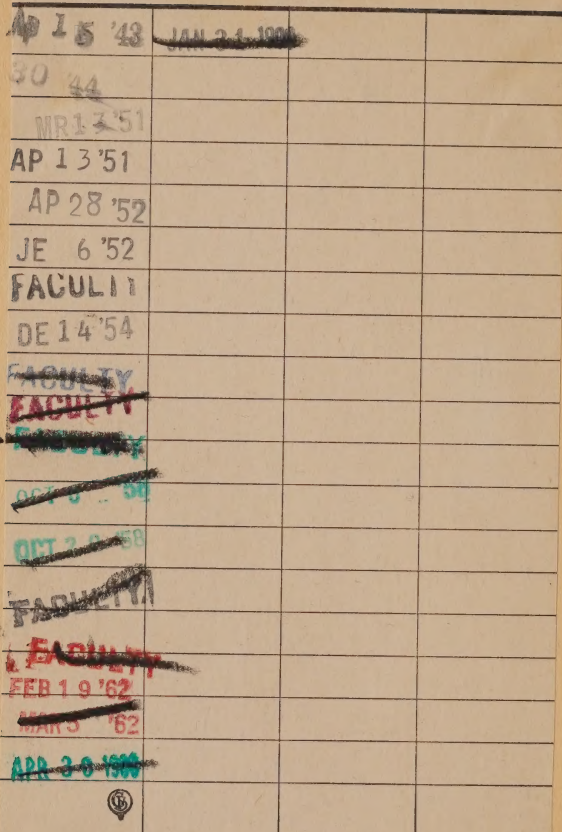 AP 15 '43 JAN 31 1900
30 44
MR 13 '51
AP 13 '51
AP 28 '52
JE 6 '52
FACULTY
DE 14 '54
FACULTY
FACULTY
FACULTY
OCT
OCT '58
FACULTY
FACULTY
FEB 19 '62
MAR 5 '62
APR 30 1900